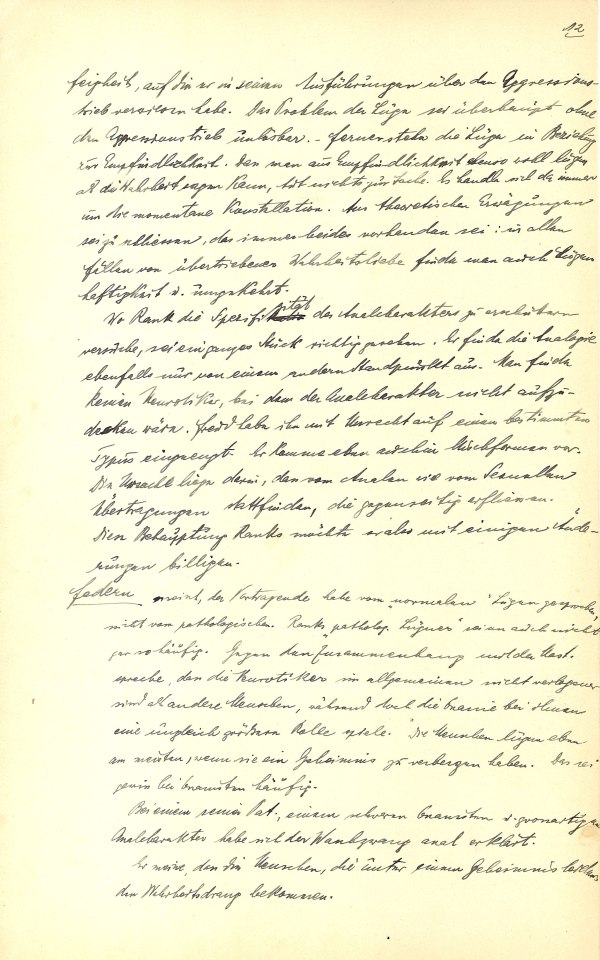 12
feigheit, auf die er in seinen Ausführungen über den Aggressions-
trieb verwiesen habe. Das Problem der Lüge sei überhaupt ohne
den Aggressionstrieb unlösbar. - ferner stehe die Lüge in Beziehung
zur Empfindlichkeit. dass man aus Empfindlichkeit ebenso wohl lügen
als die Wahrheit sagen kann, tut nichts zur Sache. Es handle sich da immer
um die momentane Konstellation. Aus theoretischen Erwägungen
sei zu schliessen, dass immer beides vorhanden sei: in allen
fällen von übertriebener Wahrheitsliebe finde man auch Lügen-
haftigkeit u. umgekehrt.
Wo Rank die Spezifizität des Analcharakters zu erschüttern
versuche, sei ein ganzes Stück richtig gesehen. Er finde die Analogie
ebenfalls nur von einem andern Standpunkt aus. Man finde
keinen Neurotiker, bei dem der Analcharakter nicht aufzu-
decken wäre. freud habe ihn mit Unrecht auf einen bestimmten
Typus eingeengt. Er komme eben auch in Mischformen vor.
Die Ursache liege darin, dass vom Analen wie vom Sexuellen
Übertragungen stattfinden, die gegenseitig erfliessen.
Diese Behauptung Ranks möchte er also mit einigen Ände-
rungen billigen.
federn meint, der Vortragende habe vom "normalen" Lügen gesprochen,
nicht vom pathologischen. Ranks "patholog. Lügner" seien auch nicht
gar so häufig. Gegen den Zusammenhang mit der Mast.
spreche, dass die Neurotiker im allgemeinen nicht verlogener
sind als andere Menschen, während doch die Onanie bei ihnen
eine ungleich grössere Rolle spiele. Die Menschen lügen eben
am meisten, wenn sie ein Geheimnis zu verbergen haben. Das sei
gewiss bei Onanisten häufig.
Bei einem seiner Pat., einem schweren Onanisten u. grossartigen
Analcharakter habe sich der Waschzwang anal erklärt.
Er meine, dass die Menschen, die unter einem Geheimnis leiden,
den Wahrheitsdrang bekommen.